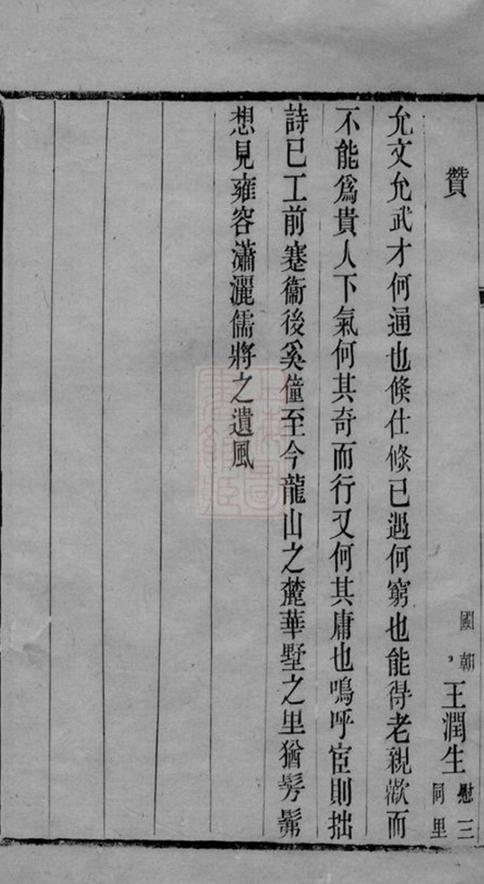 贊
國朝王潤生慰三同里
允文允武才何通也倏仕倏已遇何窮也能得老親歡而
不能爲貴人下氣何其奇而行又何其庸也嗚呼宦則拙
詩已工前蹇衞後奚僮至今龍山之麓華墅之里猶髣髴
想見雍容瀟灑儒將之遺風